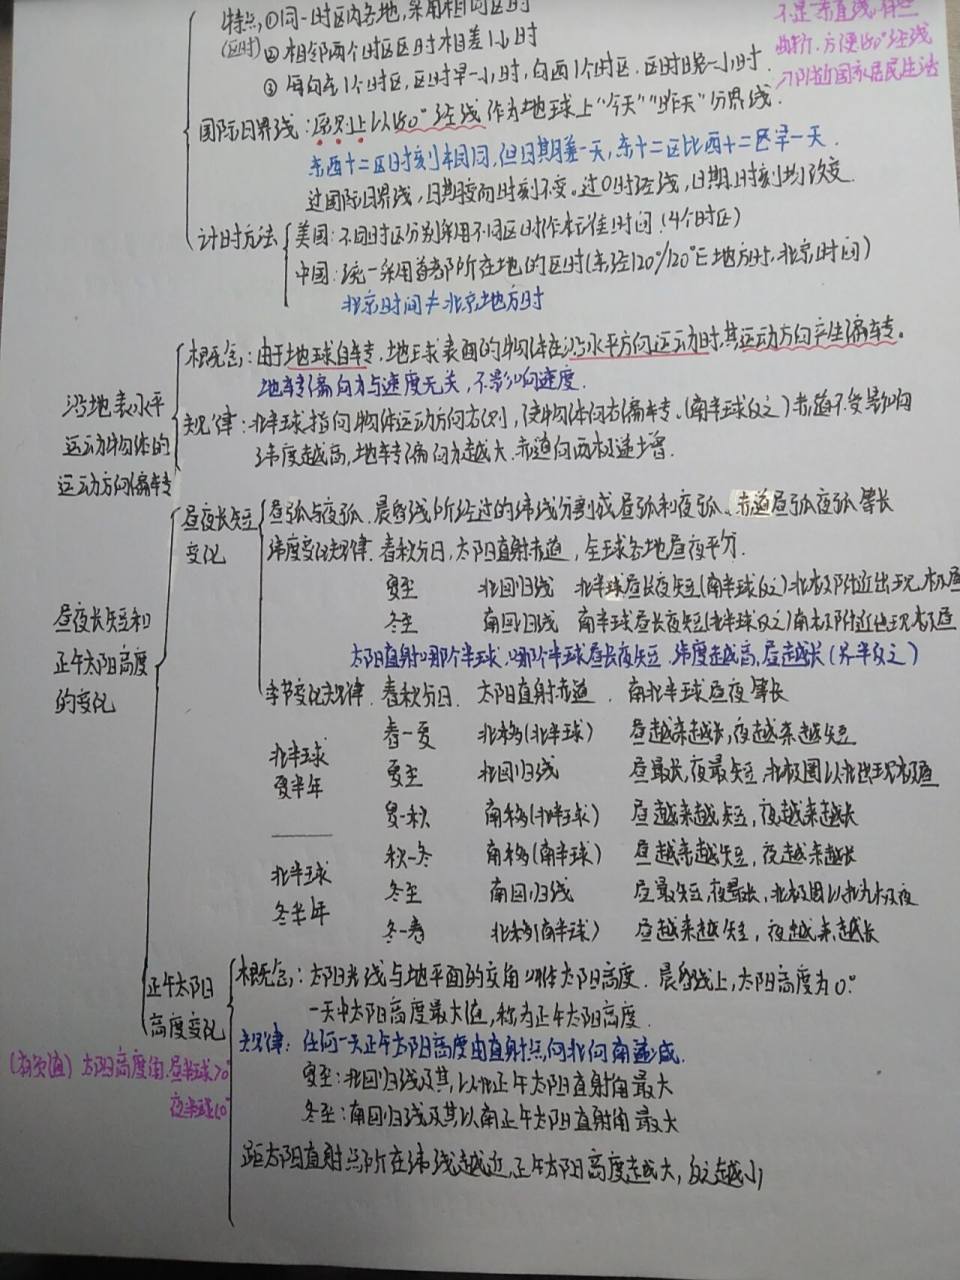 特点:①同一时区内各地,采用相同区时
(区时)②相邻两个时区区时相差1小时
③每向东1个时区,区时早一小时,向西1个时区,区时晚一小时.
不是一条直线,有些
曲折,方便180°经线
附近国家居民生活
国际日界线:原则上以180°经线作为地球上"今天""昨天"分界线.
东西十二区时刻相同,但日期差一天,东十二区比西十二区早一天.
过国际日界线,日期变而时刻不变。过0时经线,日期、时刻均改变.
计时方法
美国:不同时区分别采用不同区时作标准时间.(4个时区)
中国:统一采用首都所在地的区时(东经120°/120°E地方时,北京时间)
北京时间≠北京地方时
沿地表水平
运动物体的
运动方向偏转
概念:由于地球自转,地球表面的物体在沿水平方向运动时,其运动方向产生偏转。
地转偏向力与速度无关,不影响速度.
规律:北半球指向物体运动方向右侧,使物体向右偏转.(南半球反之)赤道不受影响
纬度越高,地转偏向力越大.赤道向两极递增.
昼夜长短和
正午太阳高度
的变化
昼夜长短
变化
昼弧与夜弧.晨昏线所经过的纬线分割成昼弧和夜弧、赤道昼弧夜弧等长
纬度变化规律.春秋分日,太阳直射赤道,全球各地昼夜平分.
夏至 北回归线 北半球昼长夜短(南半球反之)北极附近出现极昼
冬至 南回归线 南半球昼长夜短(北半球反之)南极附近出现极昼
太阳直射哪个半球,哪个半球昼长夜短.纬度越高,昼越长(另半反之)
季节变化规律.春秋分日.太阳直射赤道.南北半球昼夜等长
北半球
夏半年
春-夏 北移(北半球) 昼越来越长,夜越来越短
夏至 北回归线 昼最长,夜最短,北极圈以北出现极昼
夏-秋 南移(北半球) 昼越来越短,夜越来越长
北半球
冬半年
秋-冬 南移(南半球) 昼越来越短,夜越来越长
冬至 南回归线 昼最短,夜最长,北极圈以北为极夜
冬-春 北移(南半球) 昼越来越短,夜越来越长
正午太阳
高度变化
概念:太阳光线与地平面的交角叫作太阳高度.晨昏线上,太阳高度为0°
一天中太阳高度最大值,称为正午太阳高度.
规律:任何一天正午太阳高度由直射点向北向南递减.
(有负值)太阳高度角.昼半球>0°
夜半球<0°
夏至:北回归线及其以北正午太阳直射角最大
冬至:南回归线及其以南正午太阳直射角最大
距太阳直射点所在纬线越近,正午太阳高度越大,反之越小